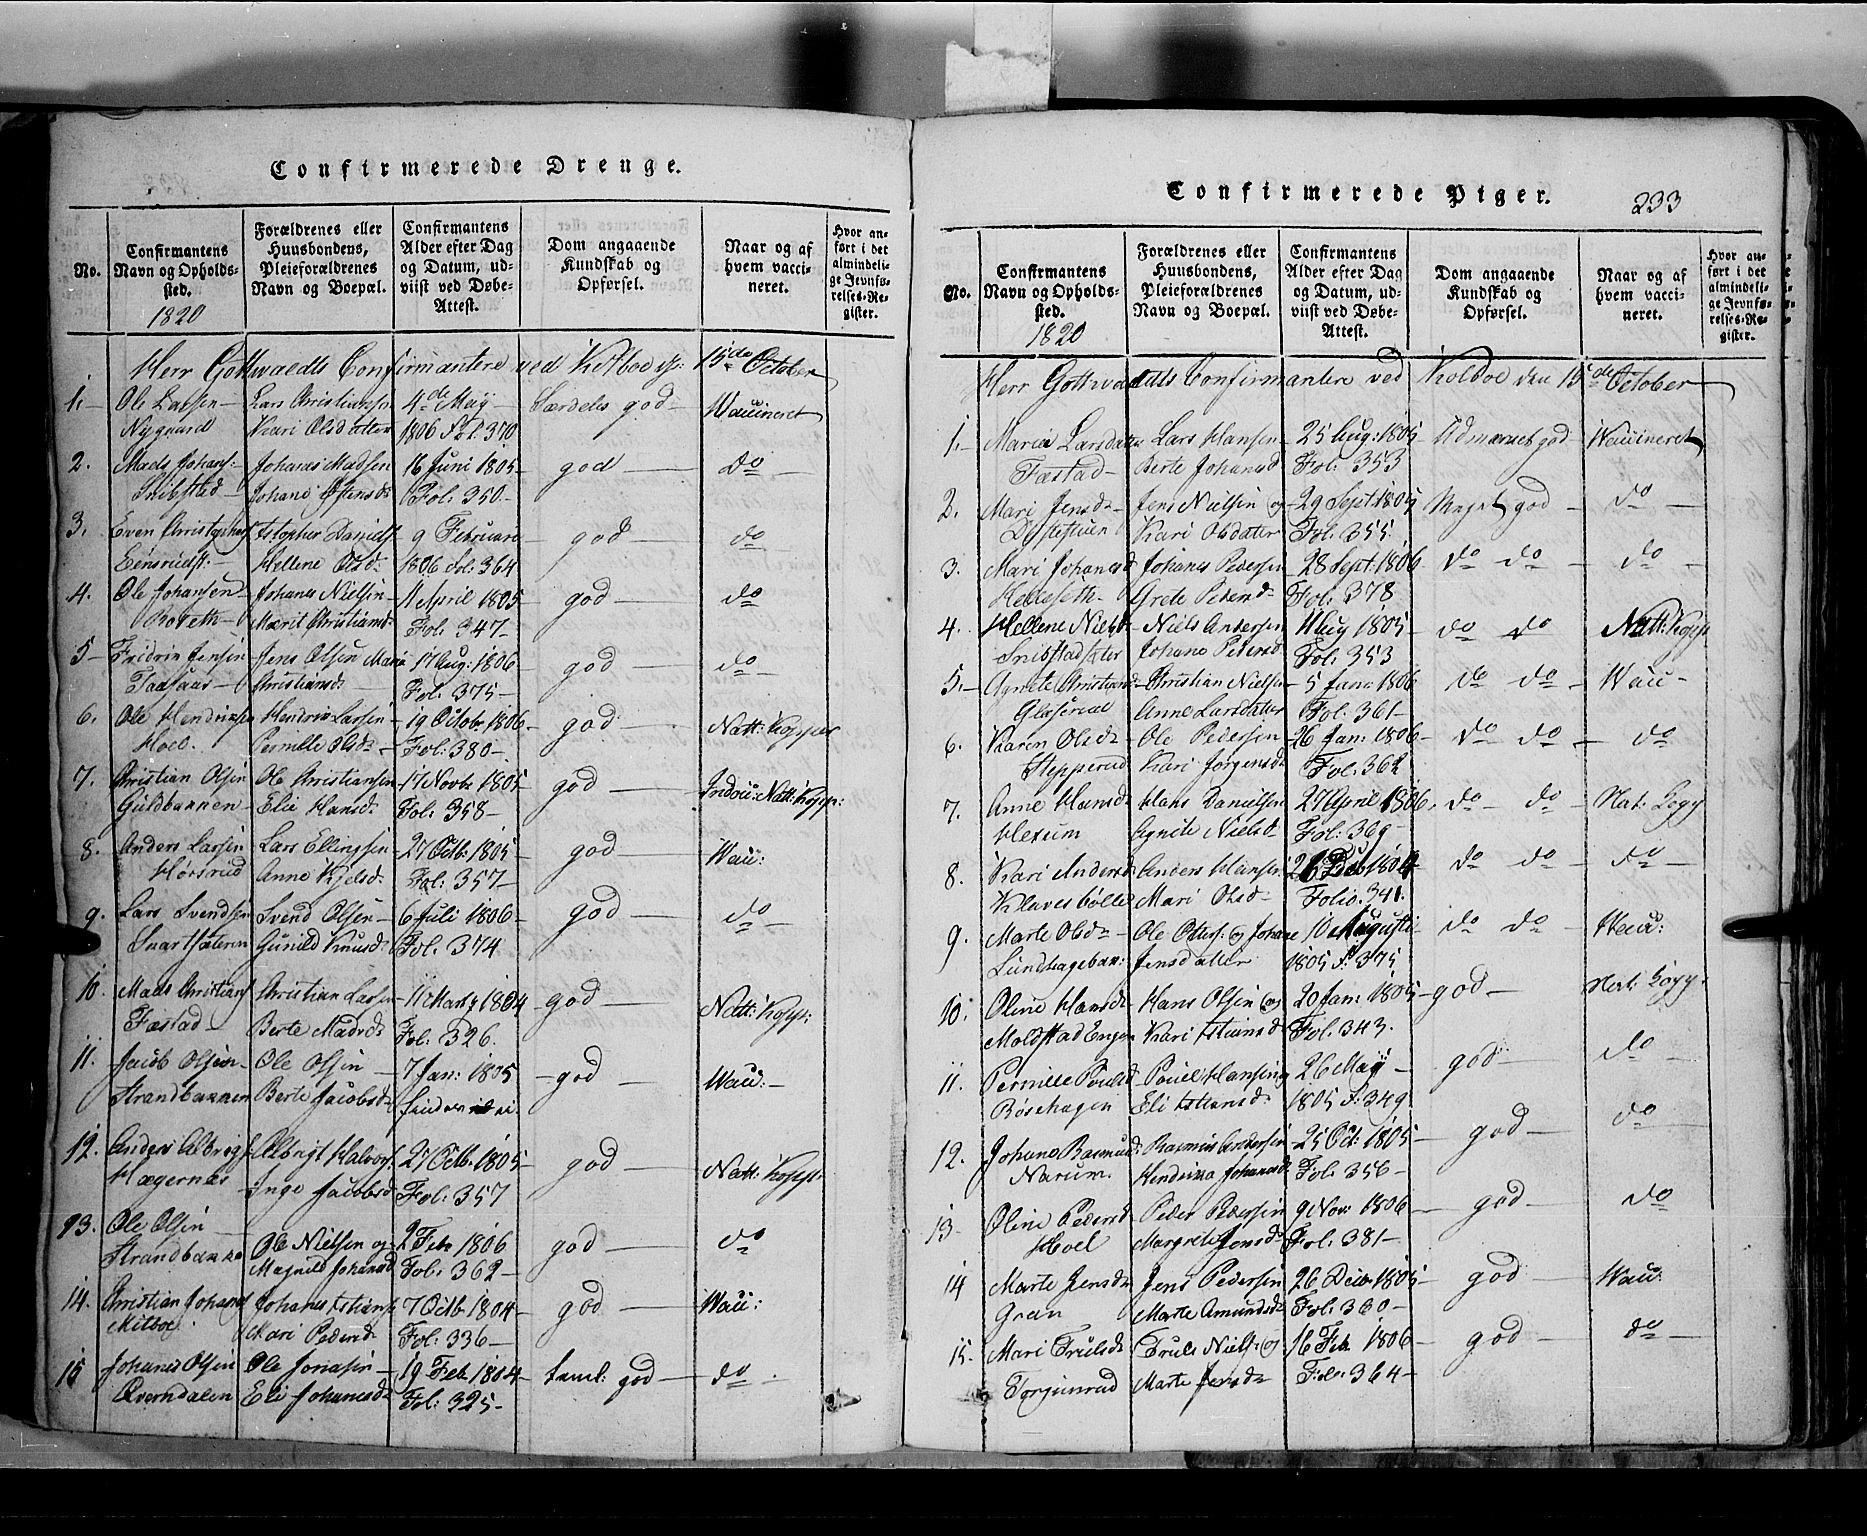 Confirmerede Drenge.
No.
Confirmantens
Navn og Opholds-
sted.
1820
Forældrenes eller
Huusbondens,
Pleieforældrenes
Navn og Boepæl.
Confirmantens
Alder efter Dag
og Datum, ud-
viist ved Døbe-
Attest.
Dom angaaende
Kundskab og
Opførsel.
Naar og af
hvem vacci-
neret.
Hvor an-
ført i det
almindeli-
ge Jevnfø-
relses-Re-
gister.
Herr Gottwaldts Confirmantere ved Kolboe 15de October
1. Ole Larsen Lars Christiansen 4de May Særdeles god Waccineret
Nygaard Kari Olsdatter 1806 Fol. 370
2. Mads Johans: Johanes Madsen 16 Juni 1805 god do
Snibsted Johane Fol: 350
3. Even Christophers Cstopher Daniels 9 Februari god do
Hellene Olsd: 1806 Fol: 364
4. Ole Johansen Johanes Nielsen April 1805 god do
Marit Christiansd Fol: 347
5 Fridrin Jensen Jens Olsen Maria 17 Aug: 1806 god do
Christiansd: Fol: 375
6. Ole Hendriksen Hendrik Larsen 19 Octob 1806 god Natt: Kopper
Hoel. Pernille Olsd: Fol: 380
7. Christian Olsen Ole Christiansen 17 Novb 1805 god Natt: Kopp:
Guldbakken Elie Hansd: Fol: 358
8. Anders Larsen Lars Ellingsen 27 Octb: 1805 god Wacc:
Hørsrud Anne Kjelsd: Fol: 357
9. Lars Svendsen Svend Olsen 6 Juli 1806 god do
Svartsæteren Gunild Knudsd: Fol: 374
10. Mads Christians Christian Larsen 11 Martz 1804 god Natt: Kopp:
Fæstad Berte Madsd: Fol: 326.
11. Jacob Olsen Ole Olsen 7 Jan: 1805 god Wacc:
Strandbakken Berte Jacobsd:
12. Anders Albrigt Albrigt Halvors 27 Octb. 1805 god Natt: Kopp:
Hægernæs Inge Jacobsd Fol: 357
13. Ole Olsen
Strandbakke Ole Nielsen og 2 Feb 1806 god do
Magnild Johansd Fol: 362
14. Christian Johans Johanes Cstians 7 Octb 1804 god Wacc:
Milboe. Mari Pedersd Fol: 336
15 Johanes Olsen Ole Jonasen 19 Feb 1804 taml: god do
Øverndalen Eli Johannesd: Fol: 325
Confirmerede Piger. 233
No.
Confirmantens
Navn og Opholds-
sted.
1820
Forældrenes eller
Huusbondens,
Pleieforældrenes
Navn og Boepæl.
Confirmantens
Alder efter Dag
og Datum, ud-
viist ved Døbe-
Attest.
Dom angaaende
Kundskab og
Opførsel.
Naar og af
hvem vacci-
neret.
Hvor an-
ført i det
almindeli-
ge Jevnfø-
relses-Re-
gister.
Herr Gottwaldts Confirmantere ved Kolboe den 15de October
1. Maria Larsdatter Lars Hansen 25 Aug: 1805 Udmærket god Waccineret
Fæstad Berte Johansd Fol: 353
2. Mari Jensd: Jens Nielsen og 29 Sept 1805 Meget god do
Kari Olsdatter Fol: 355
3. Mari Johansd Johanes Pedersen 28 Sept: 1806 do do do
Helleseth Grete Pedersd Fol: 378
4. Hellene Nielsd Niels Andersen Aug 1805 do do Natt: Kopp
Snibstadsæter Johane Pedersd Fol: 353
5. Agnete Christiansd Christian Nielsen 5 Jan: 1806 do do Wacc
Glæserud Anne Larsdatter Fol: 361
6. Karen Olsd: Ole Pedersen 26 Jan: 1806 do do do
Stepperud Kari Jørgensd Fol: 362
7. Anne Hansd Hans Danielsen 27 April 1806. do do Nat: Kopp
Hexum Agnete Nielsd Fol: 369
8. Kari Andersd Anders Hansen Dec 1804 do do do
Klavesbølle Mari Olsd: Folio: 341.
9. Marte Olsd: Ole Peders: og Johane 10 Augusti do do Wacc:
Lundhagebak: Jensdatter 1805 F: 375
10. Oline Hansd: Hans Olsen og 20 Jan: 1805 god Nat: Kopp.
Moldstad Engen Kari Cstiansd Fol: 343.
11. Pernille Poulsd Poul Hansen og 26 May god do
Røsehagen Eli Cstiansd: 1805 F: 349
12. Johane Rasmusd: Rasmus Andersen 25 Oct: 1805 god do
Narum. Hendrikka Johansd: Fol: 356
13. Oline Pedersd Peder Pedersen 9 Nov: 1806 god do
Hoel Margrete Jensd: Fol: 381
14 Marte Jensd: Jens Pedersen 26 Decb 1805 god Wacc
Gran Marte Amundsd: Fol: 360
15. Mari Trulsd: Truls Niels: og 16 Feb 1806 god do
Torgunrud Marte Jensd: Fol: 364